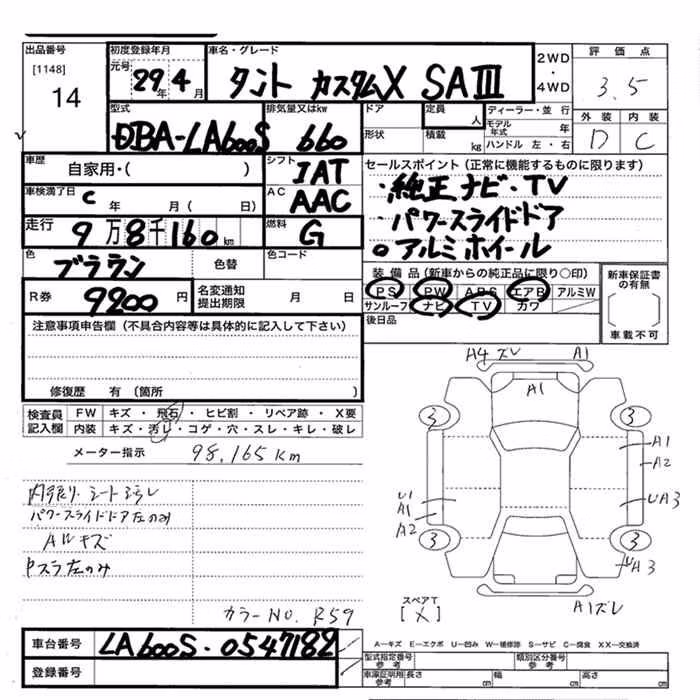 出品番号
[1148]
14
初度登録年月
元号 29年 4月
車名・グレード
タント カスタムX SAⅢ
2WD
・
4WD
評価点
3.5
外装 内装
D C
型式
DBA-LA600S
排気量又はkw
660
ドア
形状
定員 人
積載 kg
ディーラー・並行
モデル年式 年
ハンドル 左・右
車歴
自家用・( )
シフト
IAT
車検満了日
C 年 月( 日)
AC
AAC
走行
9万8千160km
燃料
G
色
ブララン
色替
色コード
R券
9200円
名変通知
提出期限
月 日
セールスポイント(正常に機能するものに限ります)
・純正ナビ・TV
・パワースライドドア
○アルミホイール
装備品(新車からの純正品に限り○印)
PS PW ABS エアB アルミW
サンルーフ ナビ TV カワ
後日品
新車保証書
の有無
車載不可
注意事項申告欄(不具合内容等は具体的に記入して下さい)
修復歴 有(箇所 )
検査員
記入欄
FW キズ・飛石・ヒビ割・リペア跡・X要
内装 キズ・汚レ・コゲ・穴・スレ・キレ・破レ
メーター指示 98,165km
内張り.シート汚レ
パワースライドドア左のみ
AWキズ
Pスラ左のみ
カラーNO. R59
A4 ズレ A1
A1
3 3
A1
A2
U1
A1
A2
UA3
3 3
UA3
A1ズレ
スペアT
[X]
車台番号
LA600S-0547182
登録番号
A－キズ E－エクボ U－凹み W－補修跡 S－サビ C－腐食 XX－交換済
型式指定番号
参考
類別区分番号
参考
車庫証明用
参考
長さ cm 幅 cm 高さ cm